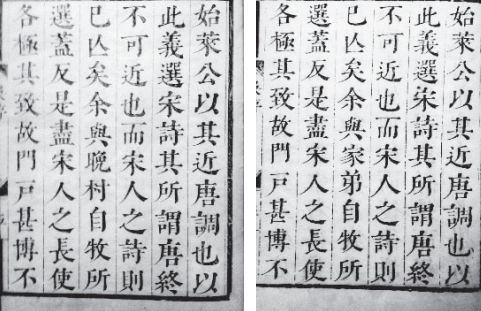 始萊公以其近唐調也以
此義選宋詩其所謂唐終
不可近也而宋人之詩則
已亾矣余與晚村自牧所
選蓋反是盡宋人之長使
各極其致故門戸甚博不
始萊公以其近唐調也以
此義選宋詩其所謂唐終
不可近也而宋人之詩則
已亾矣余與家弟自牧所
選蓋反是盡宋人之長使
各極其致故門戸甚博不